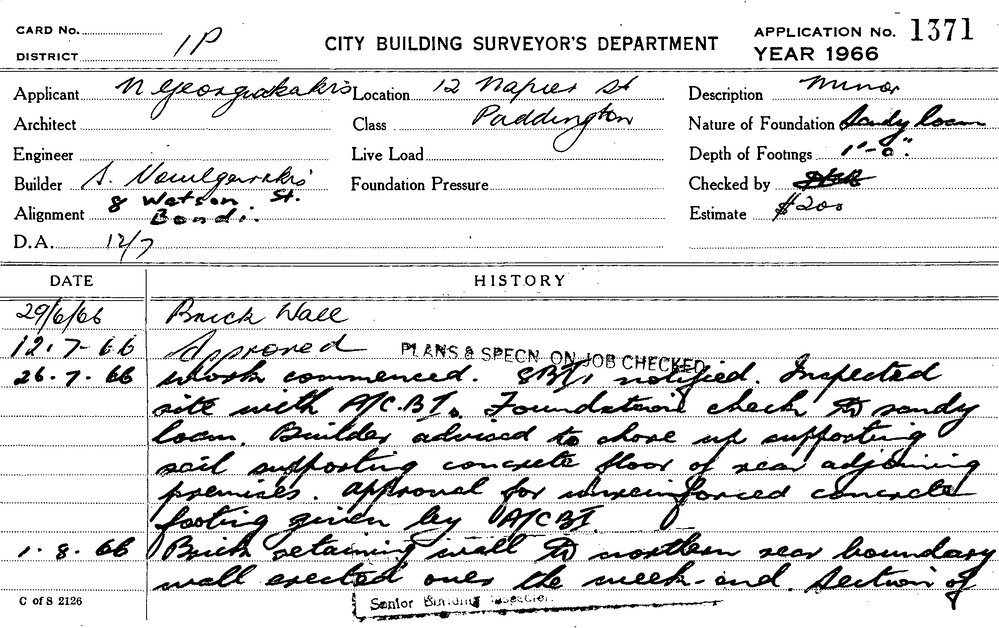 CARD No.
DISTRICT 1P
CITY BUILDING SURVEYOR'S DEPARTMENT
APPLICATION No. 1371
YEAR 1966
Applicant N Georgakakis Location 12 Napier St Description Minor
Architect Class Paddington Nature of Foundation Sandy loam
Engineer Live Load Depth of Footings 1'-0".
Builder S. Foundation Pressure Checked by
8 Watson St.
Alignment Bondi. Estimate $200
D.A. 12/7
DATE HISTORY
29/6/66 Brick Wall
12.7-66 Approved PLANS & SPECN. ON JOB CHECKED
26.7.66 Work commenced. SBI, notified. Inspected
site with A/C.B.I. Foundation check to sandy
loam. Builder advised to shore up supporting
soil supporting concrete floor of rear adjoining
premises. Approval for unreinforced concrete
footing given by A/CBI.
1.8.66 Brick retaining wall to northern rear boundary
wall erected over the week-end. Section of
C of S 2126 Senior Building Inspector